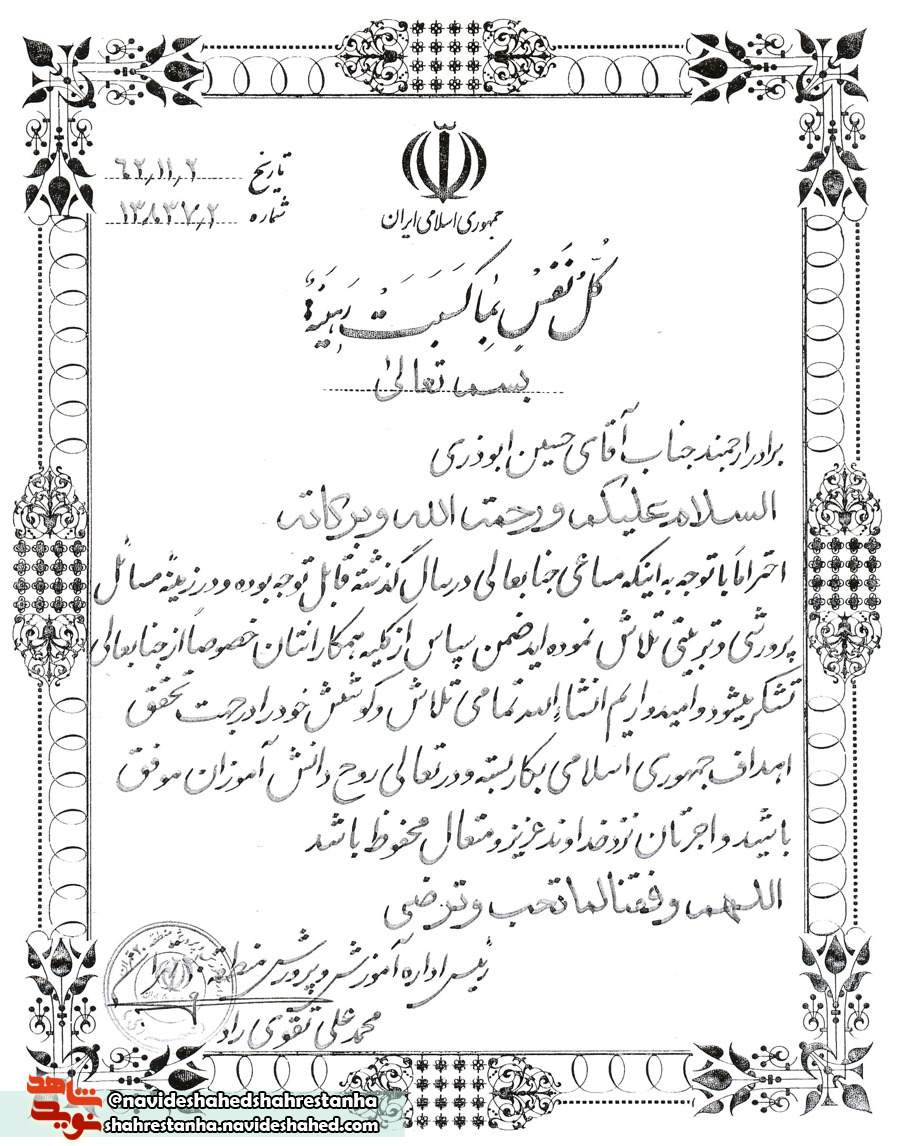 تاریخ ۶۲٫۱۱٫۲
شماره ۱۳۸۳۷٫۲
جمهوری اسلامی ایران
كُلُّ نَفْسٍ بِمَا كَسَبَتْ رَهِينَةٌ
بسمه تعالیٰ
برادر ارجمند جناب آقای حسین ابوذری
السلام علیکم و رحمة الله و برکاته
احتراماً با توجه به اینکه مساعی جنابعالی در سال گذشته قابل توجه بوده و در زمینهٔ مسائل
پرورشی و تربیتی تلاش نموده اید ضمن سپاس از کلیه همکارانتان خصوصاً از جنابعالی
تشکر میشود و امیدواریم انشاءالله تمامی تلاش و کوشش خود را در جهت تحقق
اهداف جمهوری اسلامی بکار بسته و در تعالی روح دانش آموزان موفق
باشید و اجرتان نزد خداوند عزیز و متعال محفوظ باشد
اللهم وفقنا لما تحب و ترضی
رئیس اداره آموزش و پرورش منطقه
محمد علی تقوی راد
شاهد
نوید
@navideshahedshahrestanha
shahrestanha.navideshahed.com